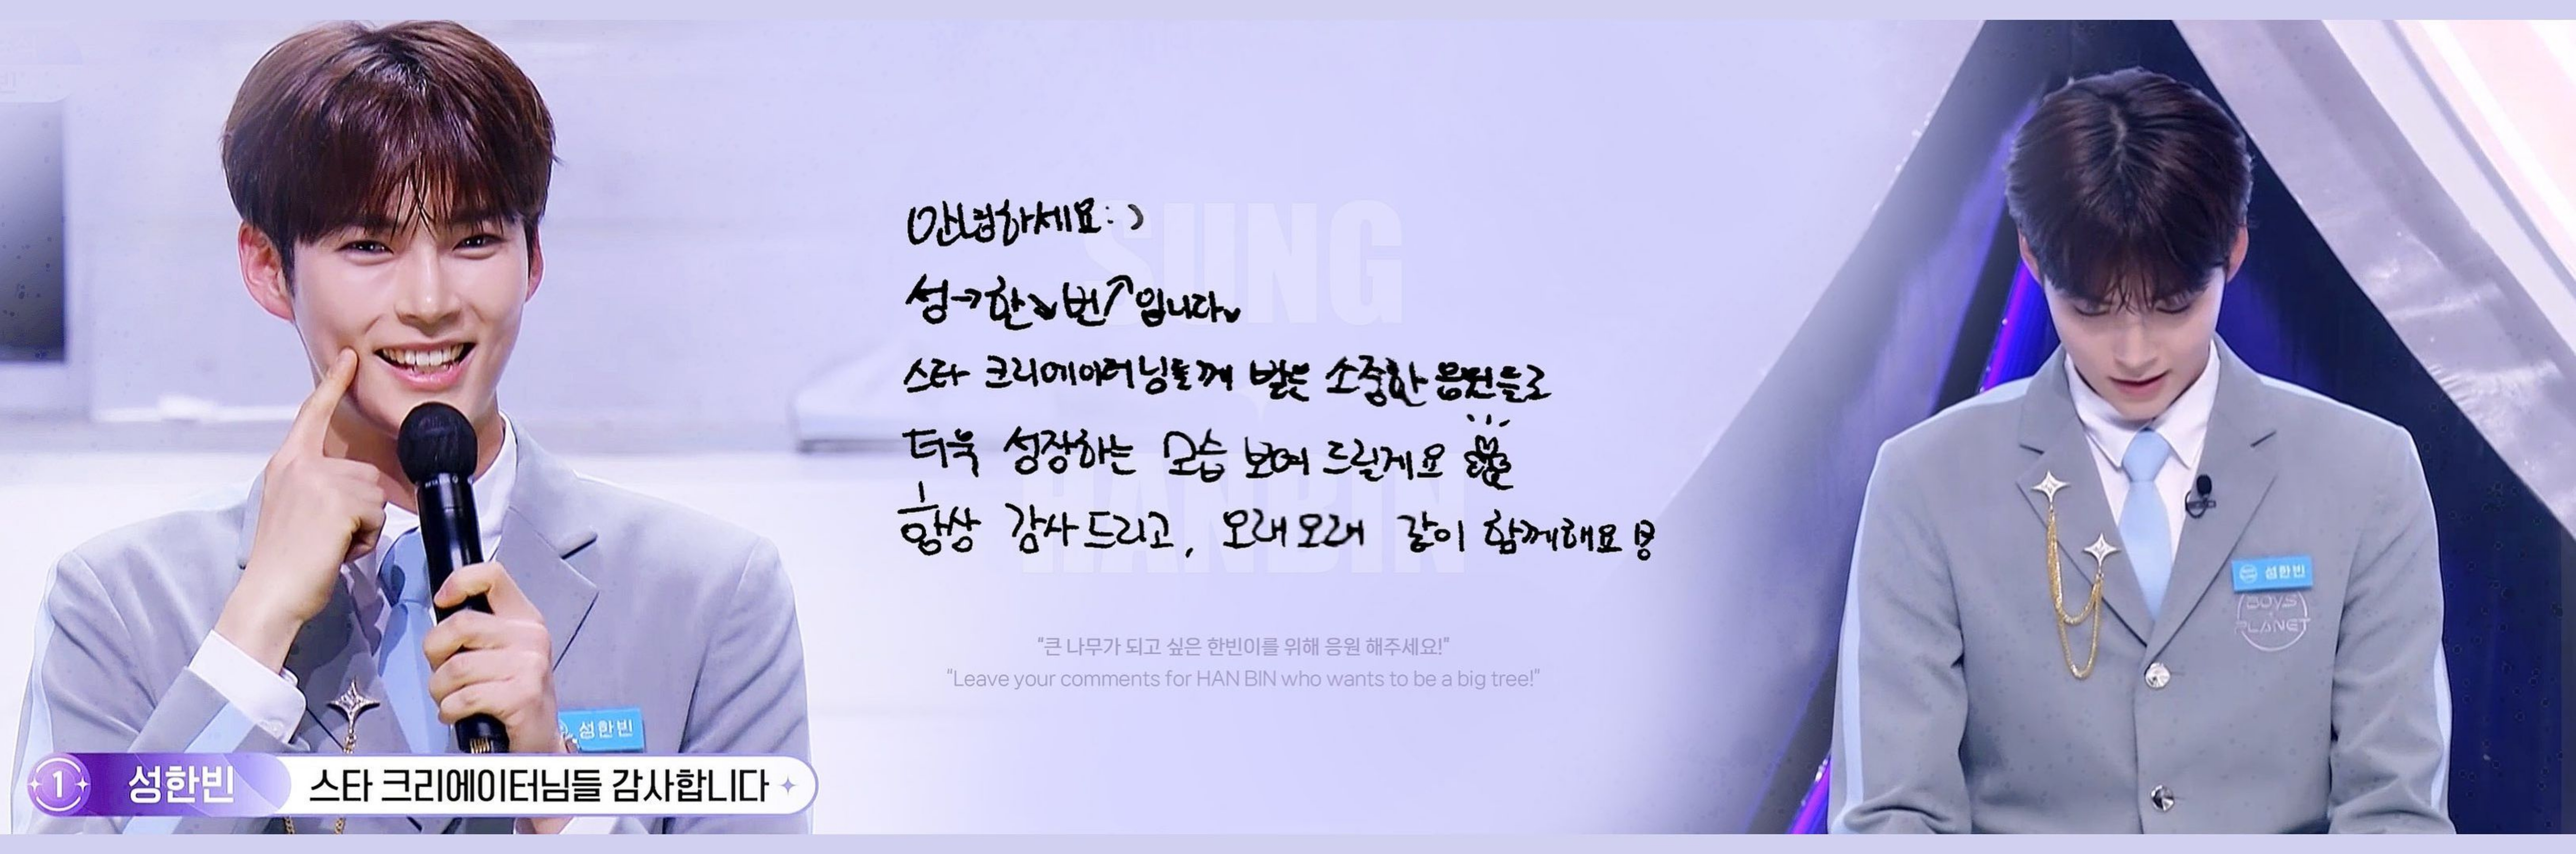 안녕하세요:)
성→한↘빈↗입니다
스타 크리에이터님들께 받은 소중한 응원들로
더욱 성장하는 모습 보여 드릴게요
항상 감사드리고, 오래오래 같이 함께해요
SUNG
HANBIN
"큰 나무가 되고 싶은 한빈이를 위해 응원 해주세요!"
"Leave your comments for HAN BIN who wants to be a big tree!"
성한빈
1 성한빈 스타 크리에이터님들 감사합니다
성한빈
BOYS
PLANET